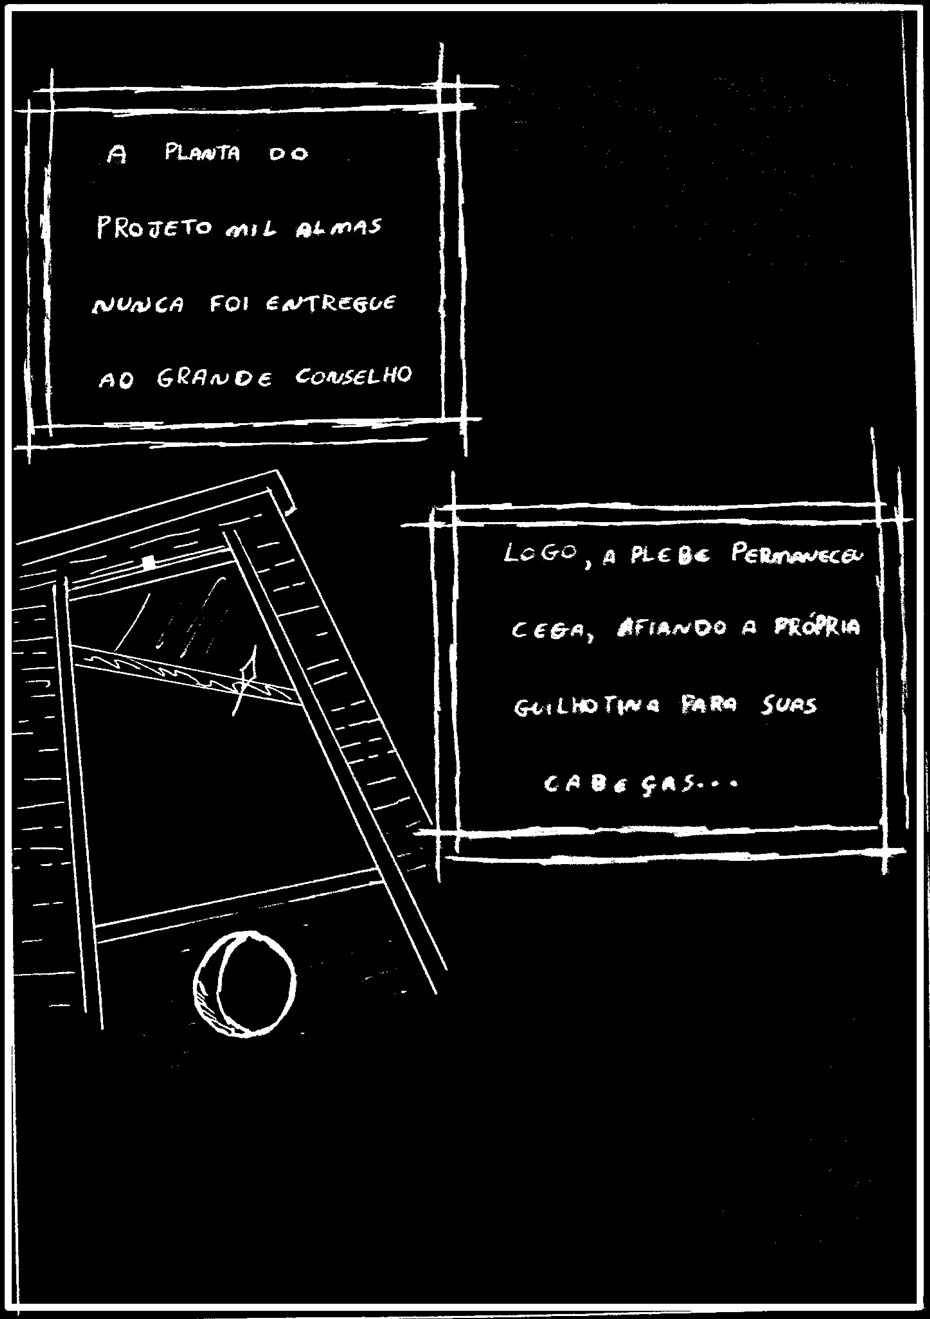 A PLANTA DO
PROJETO MIL ALMAS
NUNCA FOI ENTREGUE
AO GRANDE CONSELHO
LOGO, A PLEBE PERMANECEU
CEGA, AFIANDO A PRÓPRIA
GUILHOTINA PARA SUAS
CABEÇAS...